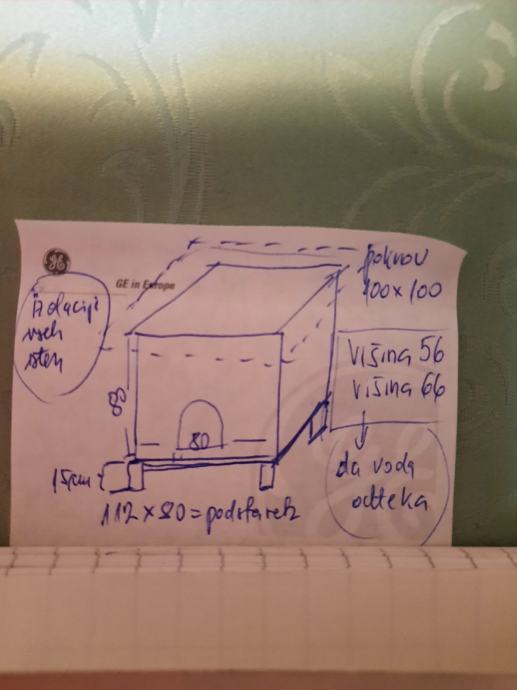 GE in Europe
pokrov
100x100
Izolacija
vseh
sten
višina 56
višina 66
80
da voda
odteka
15cm
112 x 80 = podstavek